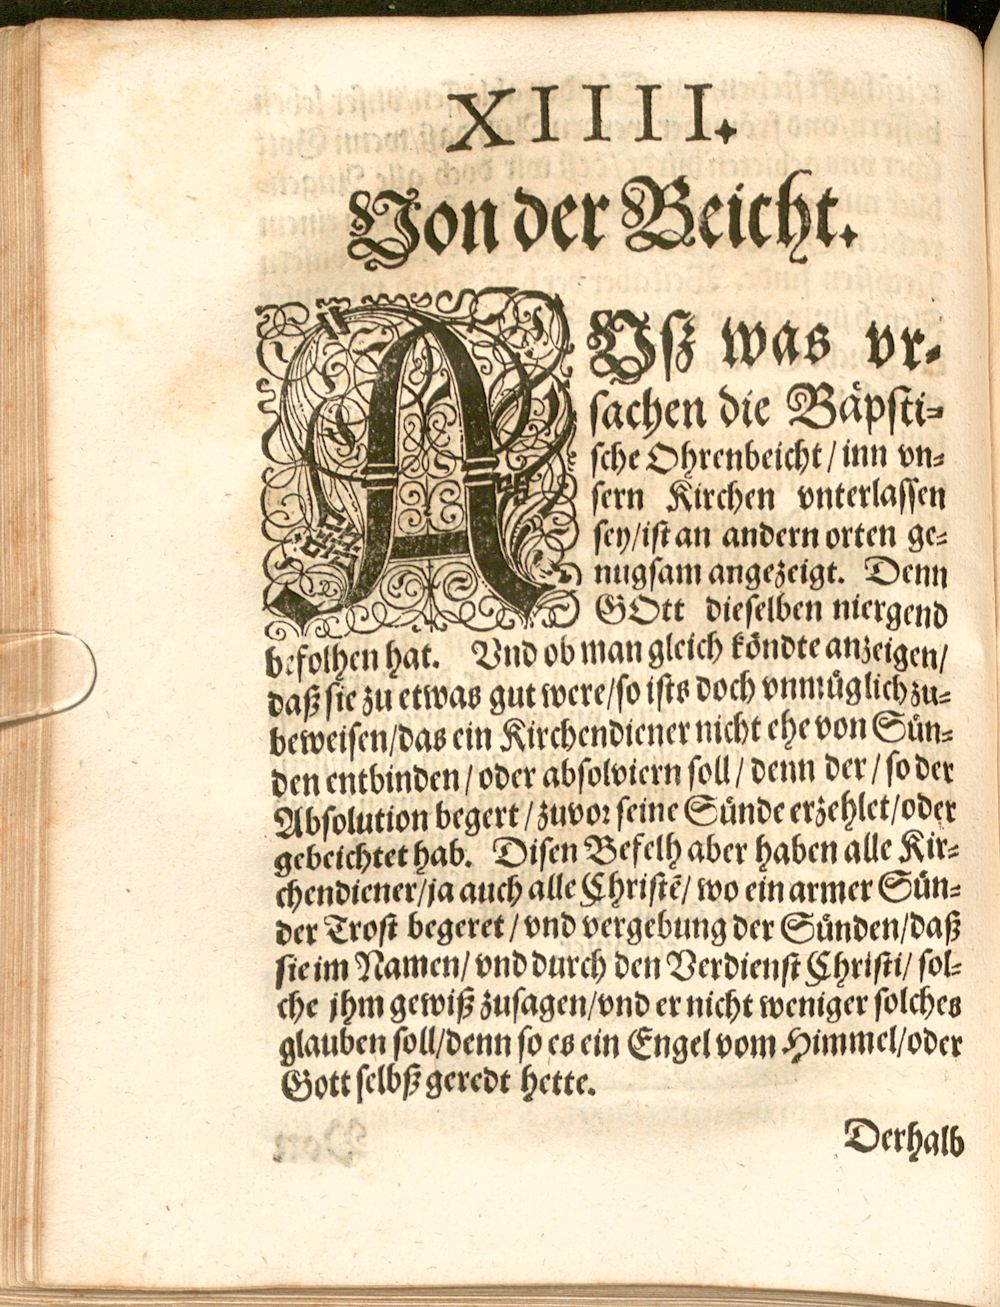 XIIIII.
Von der Beicht.
AUſz was vr-
ſachen die Bäpſti-
ſche Ohrenbeicht/inn vn-
ſern Kirchen vnterlaſſen
ſey/iſt an andern orten ge-
nugſam angezeigt. Denn
GOtt dieſelben niergend
befolhen hat. Vnd ob man gleich köndte anzeigen/
daß ſie zu etwas gut were/ſo iſts doch vnmüglich zu-
beweiſen/das ein Kirchendiener nicht ehe von Sün-
den entbinden/oder abſolviern ſoll/denn der/ſo der
Abſolution begert/zuvor ſeine Sünde erzehlet/oder
gebeichtet hab. Diſen Befelh aber haben alle Kir-
chendiener/ja auch alle Chriſtē/wo ein armer Sün-
der Troſt begeret/vnd vergebung der Sünden/daß
ſie im Namen/vnd durch den Verdienſt Chriſti/ſol-
che jhm gewiß zuſagen/vnd er nicht weniger ſolches
glauben ſoll/denn ſo es ein Engel vom Himmel/oder
Gott ſelbß geredt hette.
Derhalb